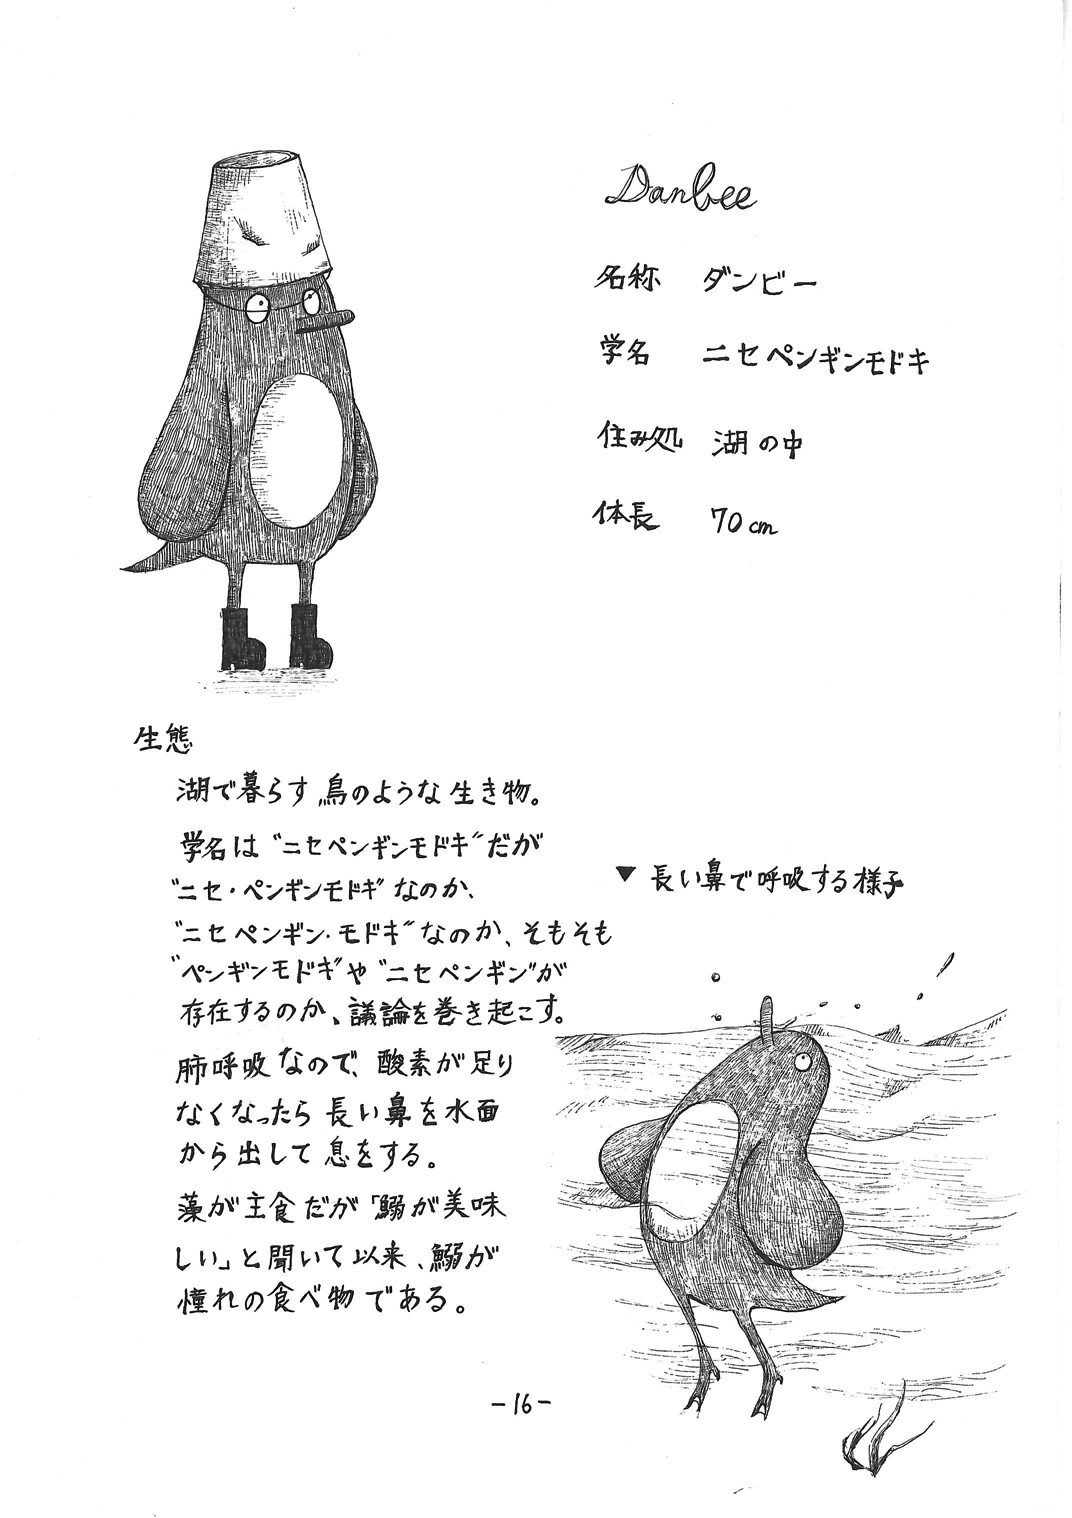 Danbee
名称 ダンビー
学名 ニセペンギンモドキ
住み処 湖の中
体長 70cm
生態
湖で暮らす鳥のような生き物。
学名は"ニセペンギンモドキ"だが
"ニセ・ペンギンモドキ"なのか、
"ニセペンギン・モドキ"なのか、そもそも
"ペンギンモドキ"や"ニセペンギン"が
存在するのか、議論を巻き起こす。
肺呼吸なので、酸素が足り
なくなったら長い鼻を水面
から出して息をする。
藻が主食だが「鰯が美味
しい」と聞いて以来、鰯が
憧れの食べ物である。
▼長い鼻で呼吸する様子
-16-